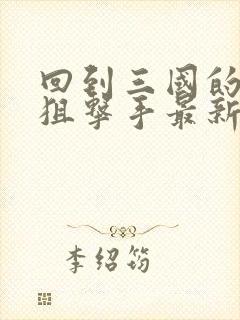 回到三國的
狙擊手最新
李绍筠